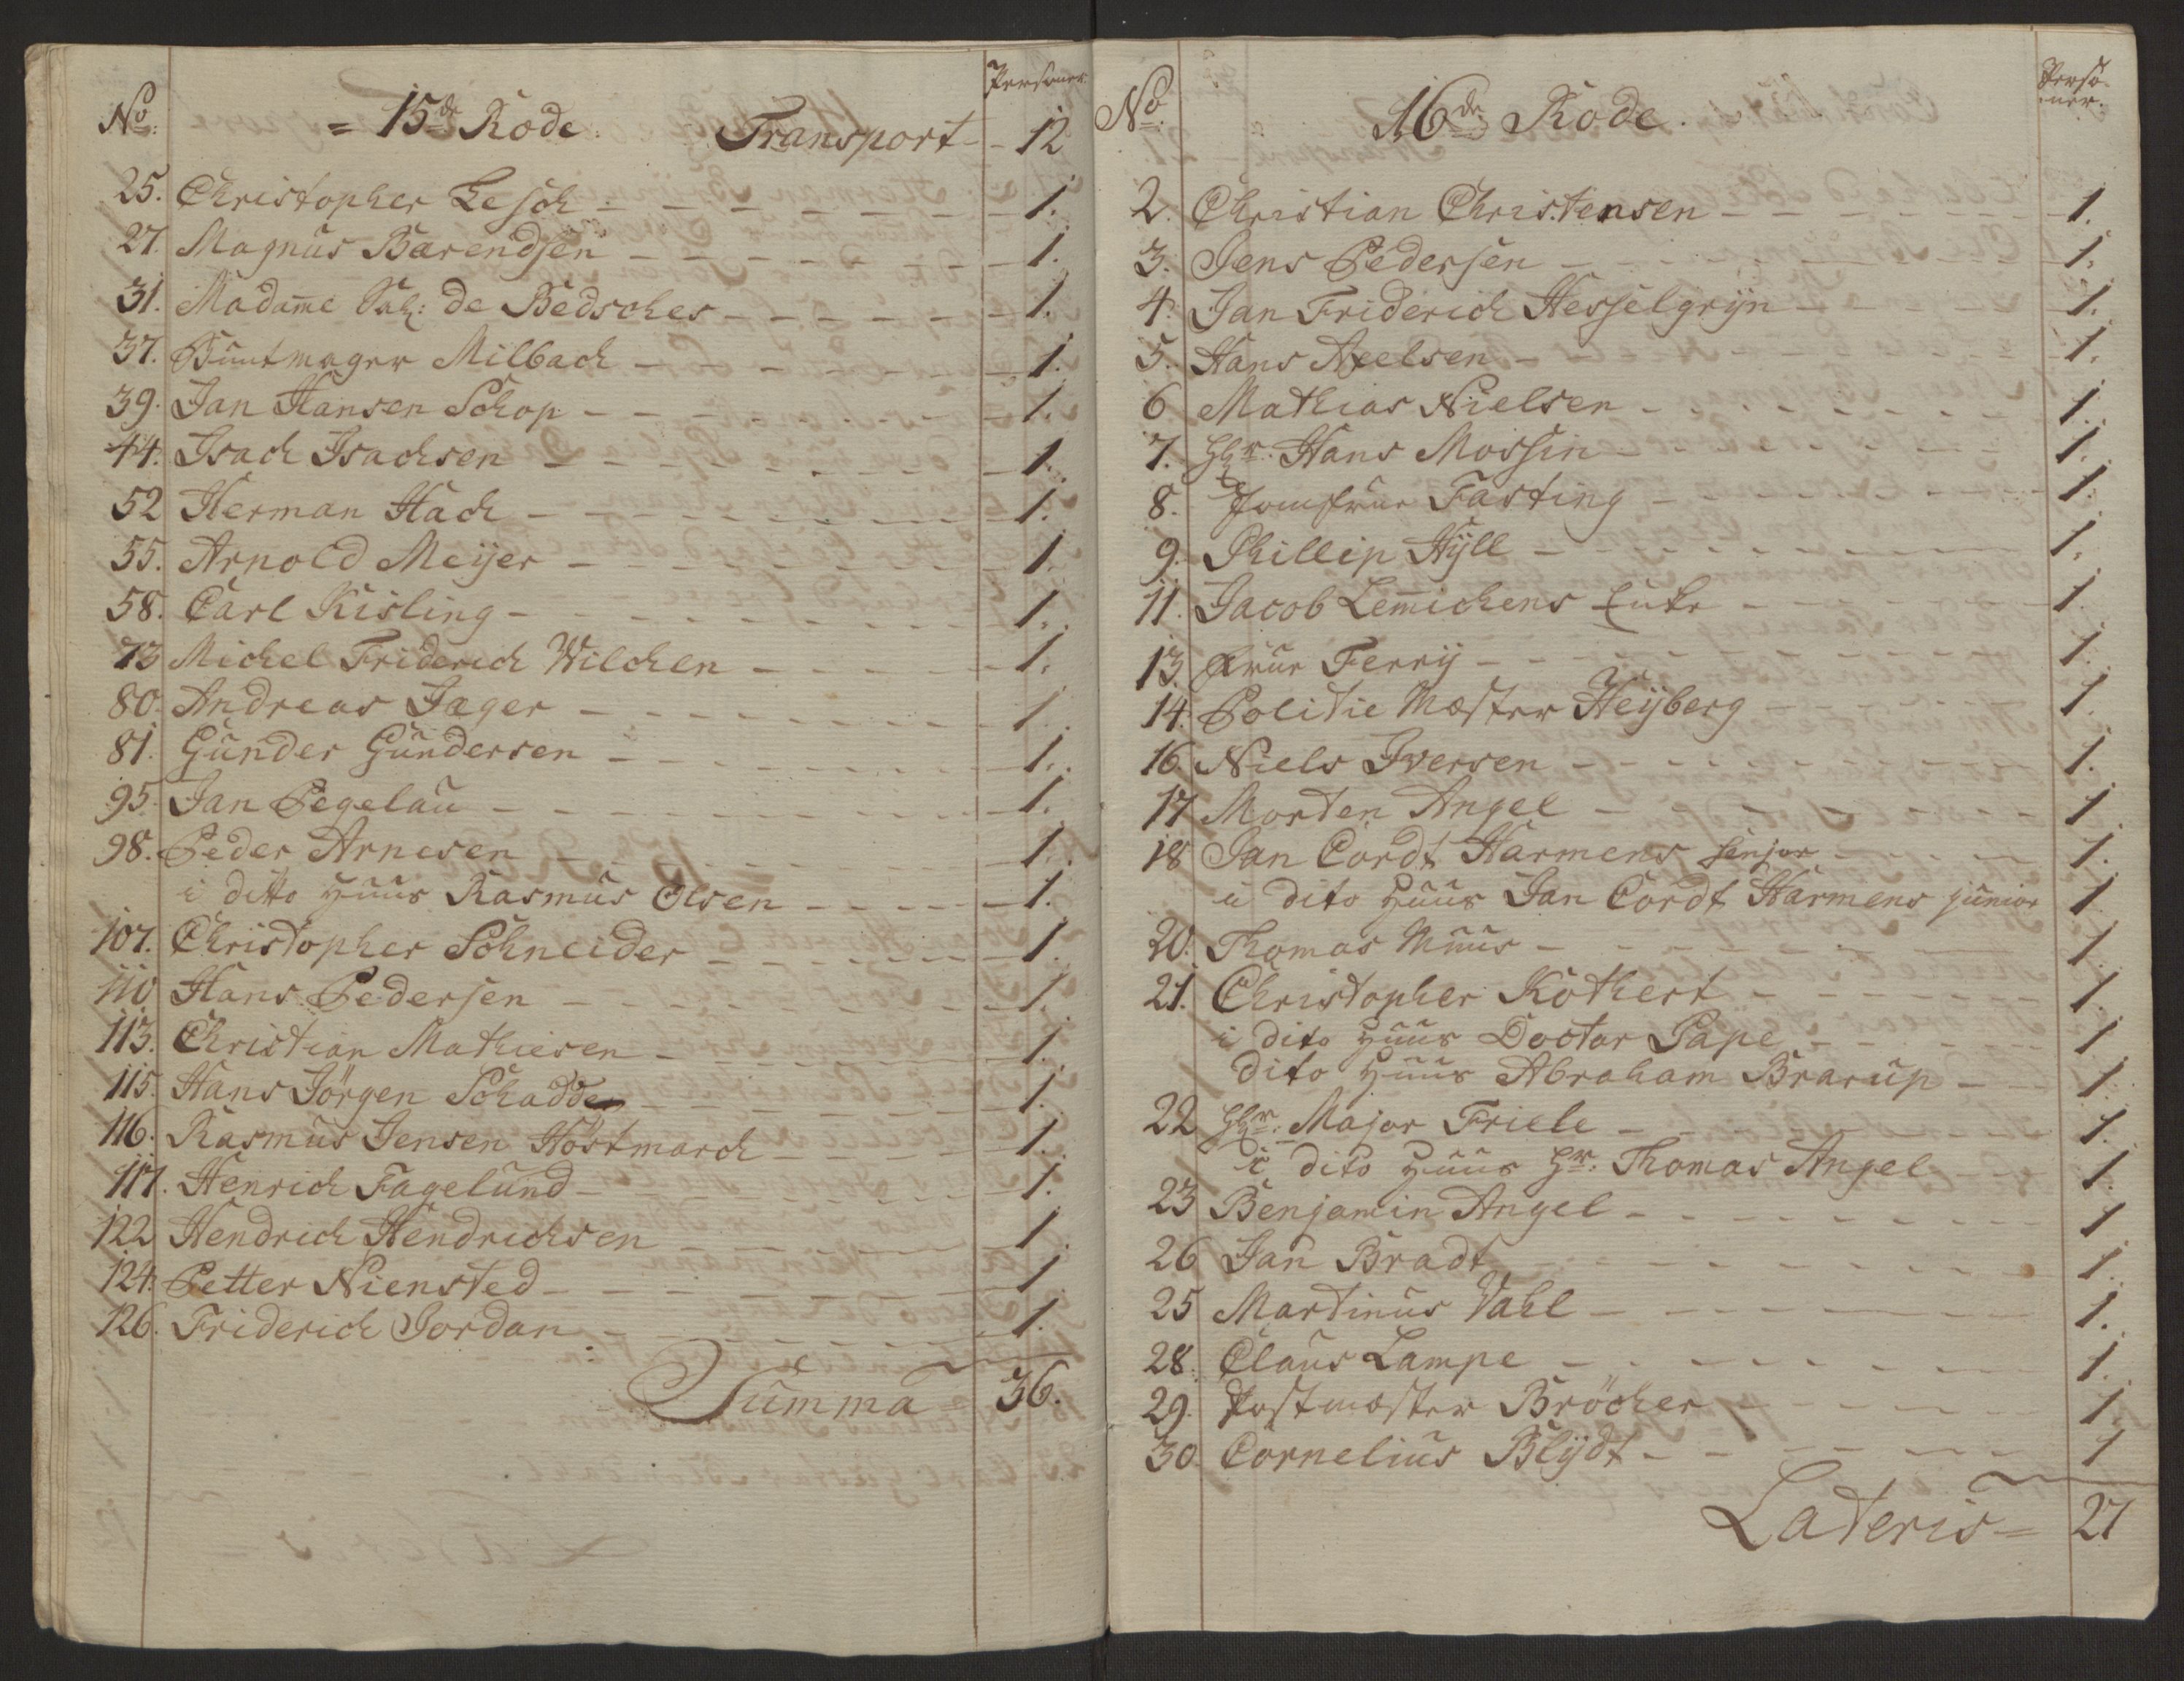 No. = 15de Rode. Personer.
Transport - 12
25. Christopher Lesch - 1.
27. Magnus Barendsen - 1.
31. Madame Sal: de Bedsches - 1.
37. Buntmager Milbach - 1.
39. Jan Hansen Schop - 1.
44. Isach Isachsen - 1.
52 Herman Hach - 1.
55. Arnold Meÿer - 1.
58. Carl Kisling - 1.
73 Michel Friderich Wilchen - 1.
80. Andreas Jæger - 1.
81. Gunder Gundersen - 1.
95. Jan Pegelau - 1.
98. Peder Arnesen - 1.
i ditto Huus Rasmus Olsen - 1.
107. Christopher Schneider - 1.
110 Hans Pedersen - 1.
113. Christian Mathiesen - 1.
115. Hans Jörgen Schadde - 1.
116. Rasmus Jensen Höstmarch - 1.
117. Henrich Fagelund - 1.
122 Hendrich Hendrichsen - 1.
124. Petter Niensted - 1.
126. Friderich Jordan - 1.
Summa = 36.
No. 16de Rode. Perso-
ner.
2. Christian Christensen - 1.
3. Jens Pedersen - 1.
4. Jan Friderich Hesselgrÿn - 1.
5. Hans Axelsen - 1.
6 Mathias Nielsen - 1.
7. Hr. Hans Mossin - 1.
8. Jomfrue Fasting - 1.
9. Phillip Hÿll - 1.
11. Jacob Lemichens Enke - 1.
13. Frue Ferrÿ - 1.
14. Politie Mæster Heÿberg - 1.
16. Niels Iversen - 1.
17 Morten Angel - 1.
18 Jan Cordt Harmens senior - 1.
i dito Huus Jan Cordt Harmens junior 1.
20. Thomas Muus - 1.
21. Christopher Köthert - 1.
i dito Huus Doctor Pape - 1
dito Huus Abraham Brarup - 1.
22 Hr. Major Friele - 1.
i dito Huus Hr. Thomas Angel 1.
23 Benjamin Angel - 1
26 Jan Bradt - 1.
25 Martinus Vahl - 1.
28. Claus Lampe - 1.
29. Postmæster Bröcher - 1.
30. Cornelius Blÿdt - 1
Lateris = 27